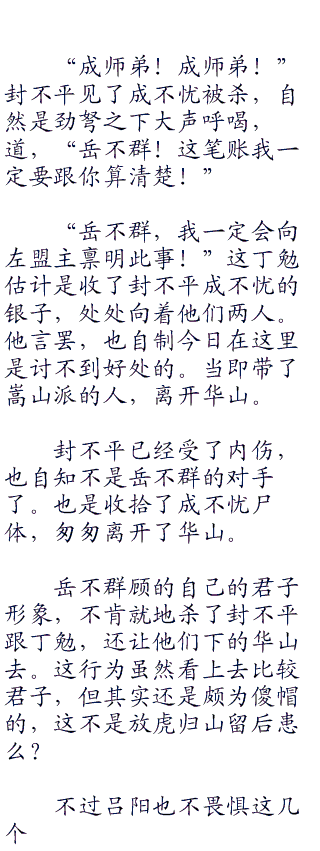 “成师弟！成师弟！”
封不平见了成不忧被杀，自
然是劲弩之下大声呼喝，
道，“岳不群！这笔账我一
定要跟你算清楚！”
“岳不群，我一定会向
左盟主禀明此事！”这丁勉
估计是收了封不平成不忧的
银子，处处向着他们两人。
他言罢，也自制今日在这里
是讨不到好处的。当即带了
嵩山派的人，离开华山。
封不平已经受了内伤，
也自知不是岳不群的对手
了。也是收拾了成不忧尸
体，匆匆离开了华山。
岳不群顾的自己的君子
形象，不肯就地杀了封不平
跟丁勉，还让他们下的华山
去。这行为虽然看上去比较
君子，但其实还是颇为傻帽
的，这不是放虎归山留后患
么？
不过吕阳也不畏惧这几
个